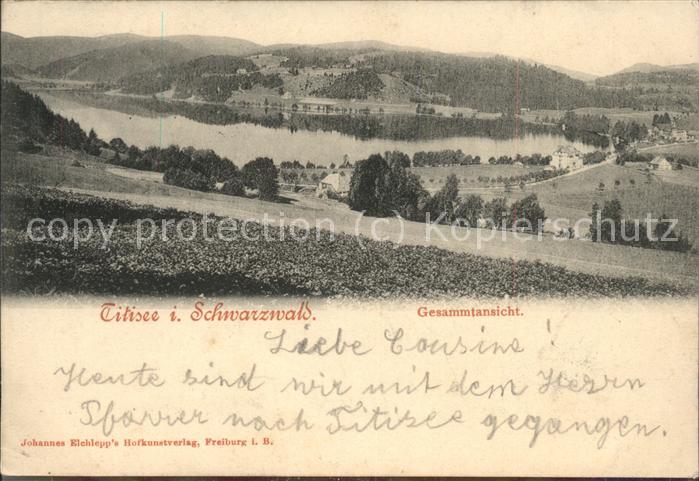 copyright Kopierschutz
Titisee i. Schwarzwald. Gesammtansicht.
Liebe Cousins!
Heute sind wir mit dem Herrn
Pfarrer nach Titisee gegangen.
Johannes Elchlepp's Hofkunstverlag, Freiburg i. B.